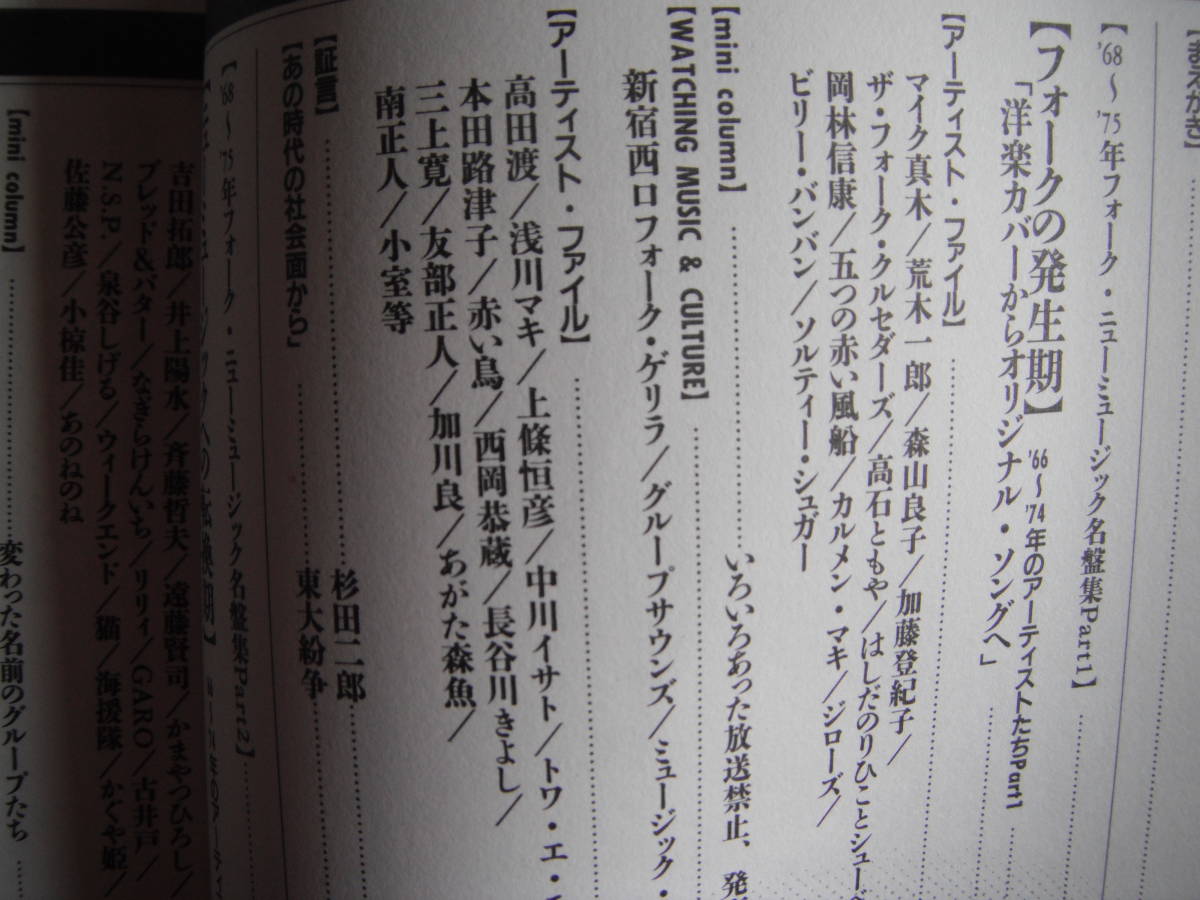 【まえがき】
【'68～'75年フォーク・ニューミュージック名盤集Part1】
【フォークの発生期】'66～'74年のアーティストたちPart1
「洋楽カバーからオリジナル・ソングへ」
【アーティスト・ファイル】
マイク真木／荒木一郎／森山良子／加藤登紀子／
ザ・フォーク・クルセダーズ／高石ともや／はしだのりひことシューベ
岡林信康／五つの赤い風船／カルメン・マキ／ジローズ／
ビリー・バンバン／ソルティー・シュガー
【mini column】いろいろあった放送禁止、発
【WATCHING MUSIC & CULTURE】
新宿西口フォーク・ゲリラ／グループサウンズ／ミュージック・
【アーティスト・ファイル】
高田渡／浅川マキ／上條恒彦／中川イサト／トワ・エ・
本田路津子／赤い鳥／西岡恭蔵／長谷川きよし／
三上寛／友部正人／加川良／あがた森魚／
南正人／小室等
【証言】杉田二郎
【あの時代の社会面から」東大紛争
【'68～'75年フォーク・ニューミュージック名盤集Part2】
吉田拓郎／井上陽水／斉藤哲夫／遠藤賢司／かまやつひろし／
ブレッド&バター／なぎらけんいち／リリィ／GARO／古井戸／
N.S.P.／泉谷しげる／ウィークエンド／猫／海援隊／かぐや姫／
佐藤公彦／小椋佳／あのねのね
【mini column】変わった名前のグループたち